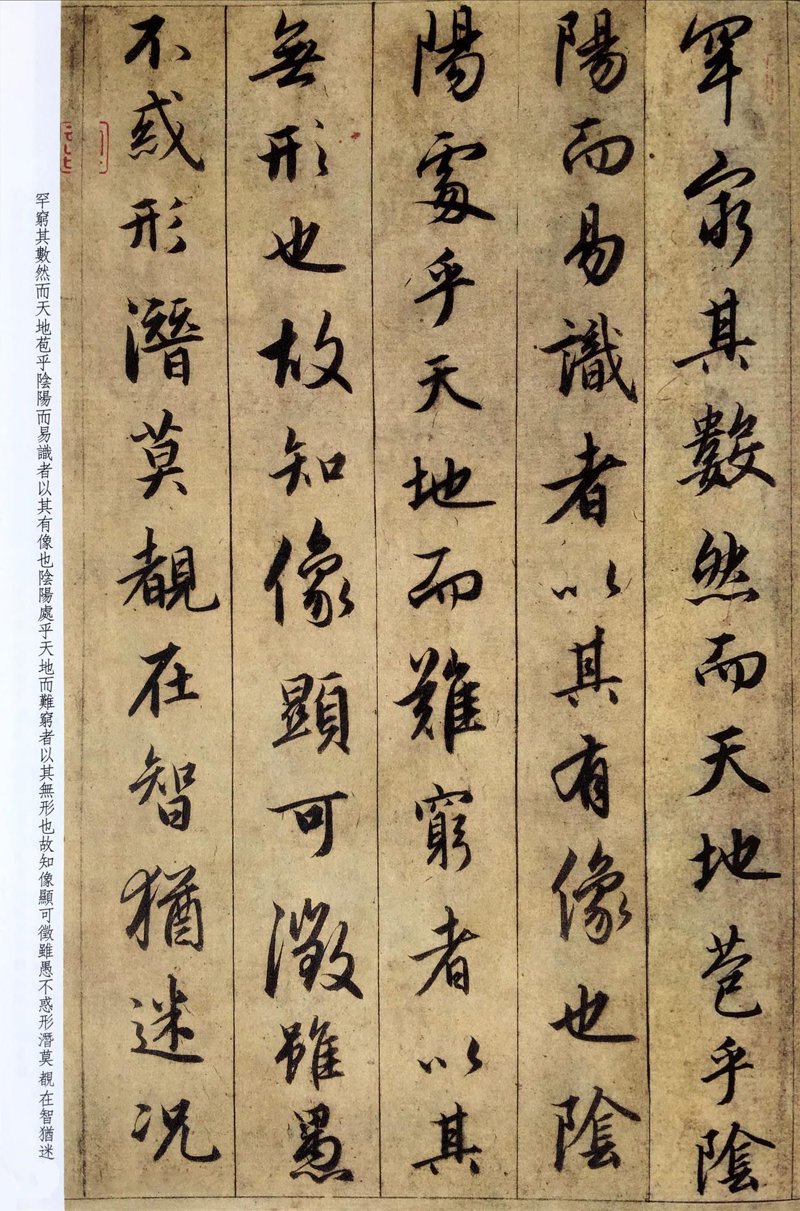 罕窮其數然而天地苞乎陰
陽而易識者以其有像也陰
陽處乎天地而難窮者以其
無形也故知像顯可徵雖愚
不惑形潛莫覩在智猶迷况
罕窮其數然而天地苞乎陰陽而易識者以其有像也陰陽處乎天地而難窮者以其無形也故知像顯可徵雖愚不惑形潛莫覩在智猶迷